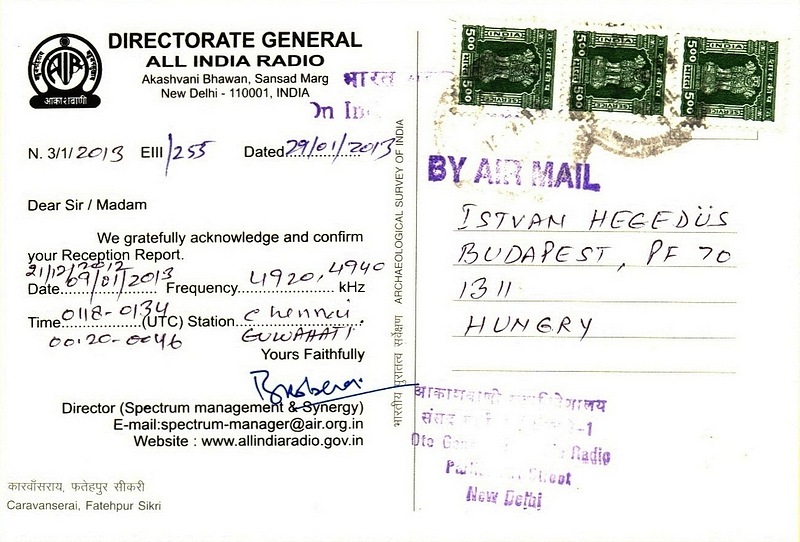 DIRECTORATE GENERAL
ALL INDIA RADIO
Akashvani Bhawan, Sansad Marg
New Delhi - 110001, INDIA
AIR
आकाशवाणी
भारत
On In
N. 3/1/2013 EIII/255 Dated 29/01/2013
Dear Sir / Madam
We gratefully acknowledge and confirm
your Reception Report.
21/12/2012
Date 09/01/2013 Frequency 4920, 4940 kHz
Time 0118-0134 (UTC) Station Chennai
00:20-0046 GUWAHATI
Yours Faithfully
Director (Spectrum management & Synergy)
E-mail:spectrum-manager@air.org.in
Website : www.allindiaradio.gov.in
कारवाँसराय, फतेहपुर सीकरी
Caravanserai, Fatehpur Sikri
भारतीय पुरातत्व सर्वेक्षण ARCHAEOLOGICAL SURVEY OF INDIA
500 500
500 500
500 500
BY AIR MAIL
ISTVAN HEGEDÜS
BUDAPEST, PF 70
1311
HUNGRY
आकाशवाणी महानिदेशालय
संसद -1
Dte Radio
Street
New Delhi